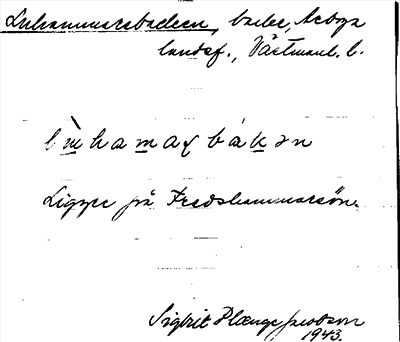 Linhammarsbacken, backe, Arboga
landsf., Västmanl. l.
lìnhamaʂbákən
Ligger på Fredshammarsön.
Sigbrit Plænge Jacobson
1943.